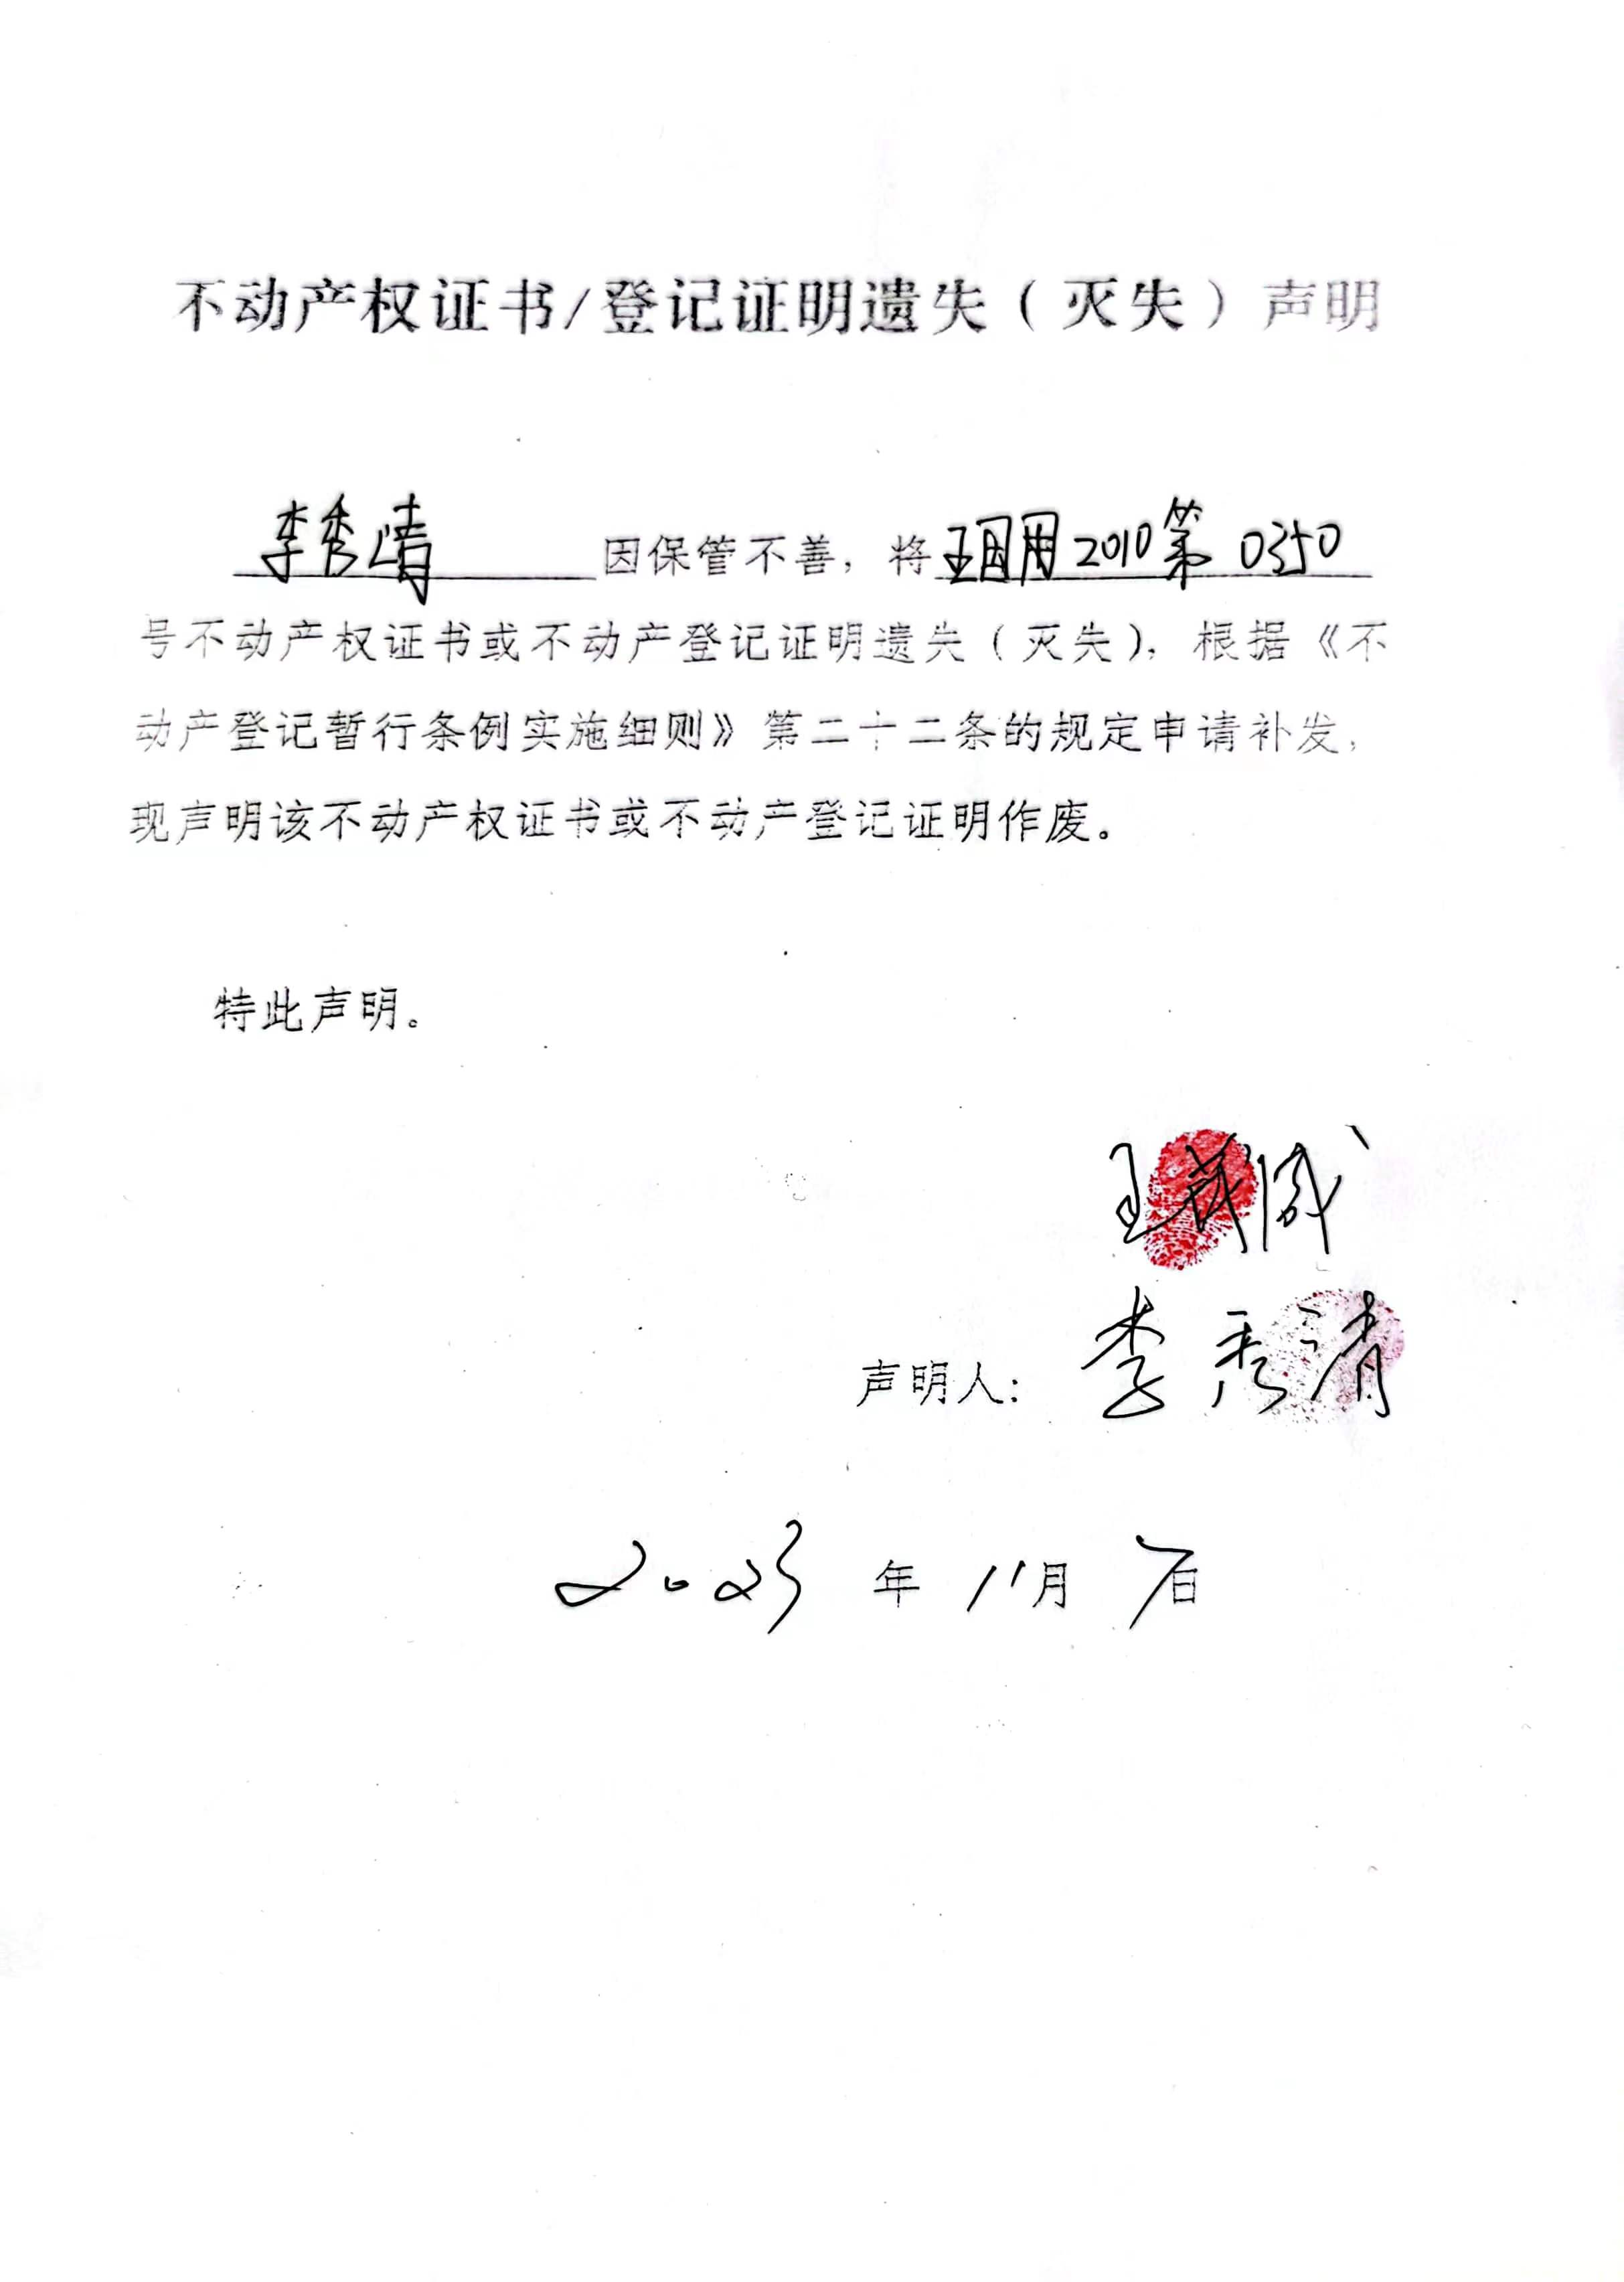 不动产权证书/登记证明遗失（灭失）声明
李秀清 因保管不善，将 王国用2010第 0350
号不动产权证书或不动产登记证明遗失（灭失），根据《不
动产登记暂行条例实施细则》第二十二条的规定申请补发，
现声明该不动产权证书或不动产登记证明作废。
特此声明。
王
声明人：李秀清
2023 年 11月 7日